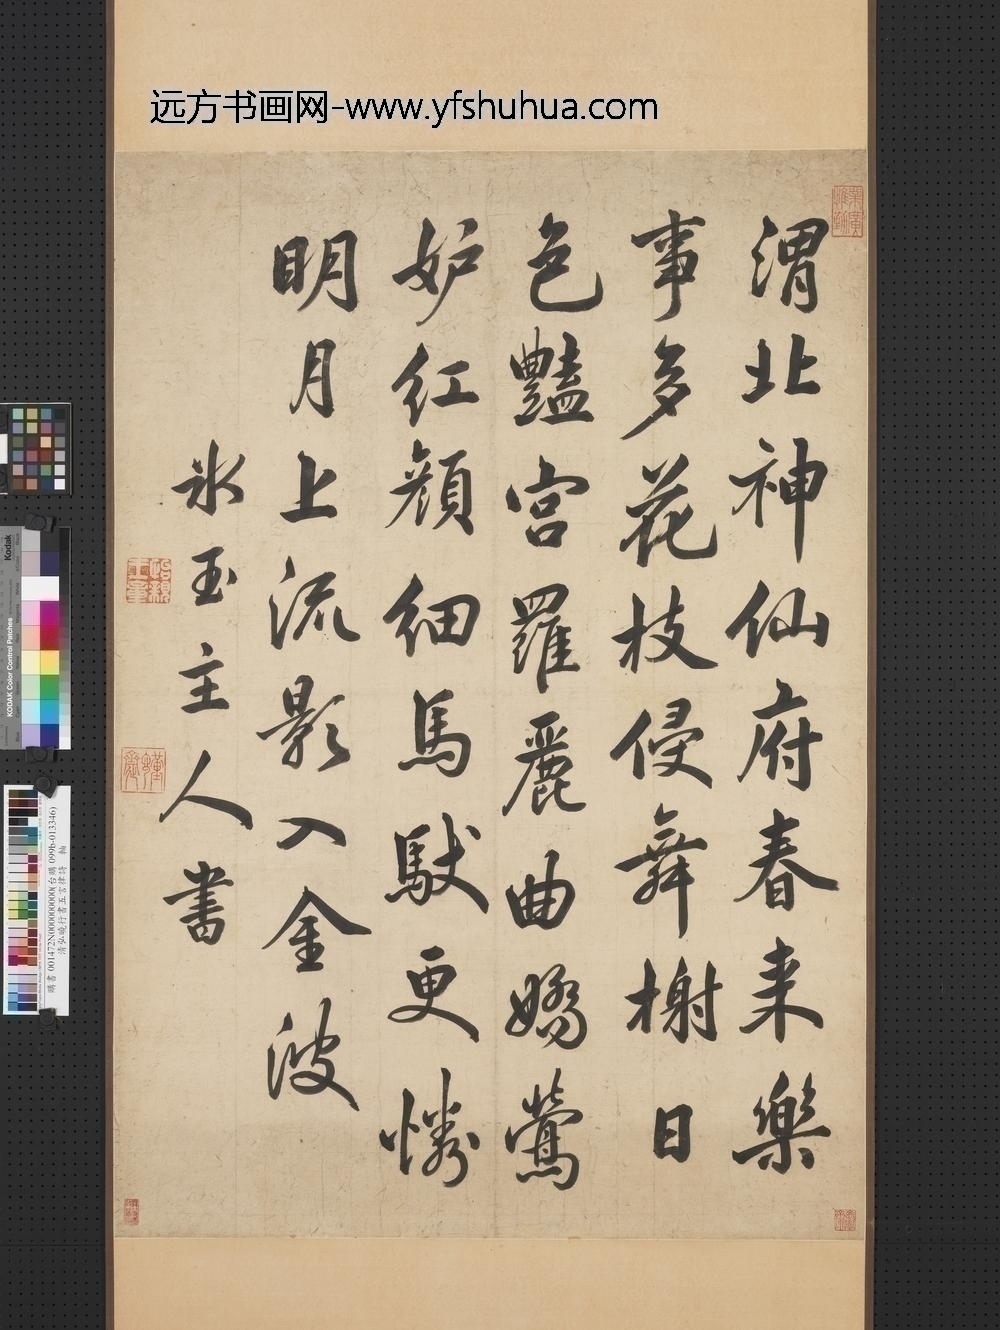 远方书画网-www.yfshuhua.com
渭北神仙府春来樂
事多花枝侵舞榭日
色豔宮羅麗曲嬌鶯
妒紅顏細馬馱更憐
明月上流影入金波
冰玉主人書
Kodak
KODAK Color Control Patches
購書 001472N000000000(台購 099b-013346)
清弘曉行書五言律詩 軸